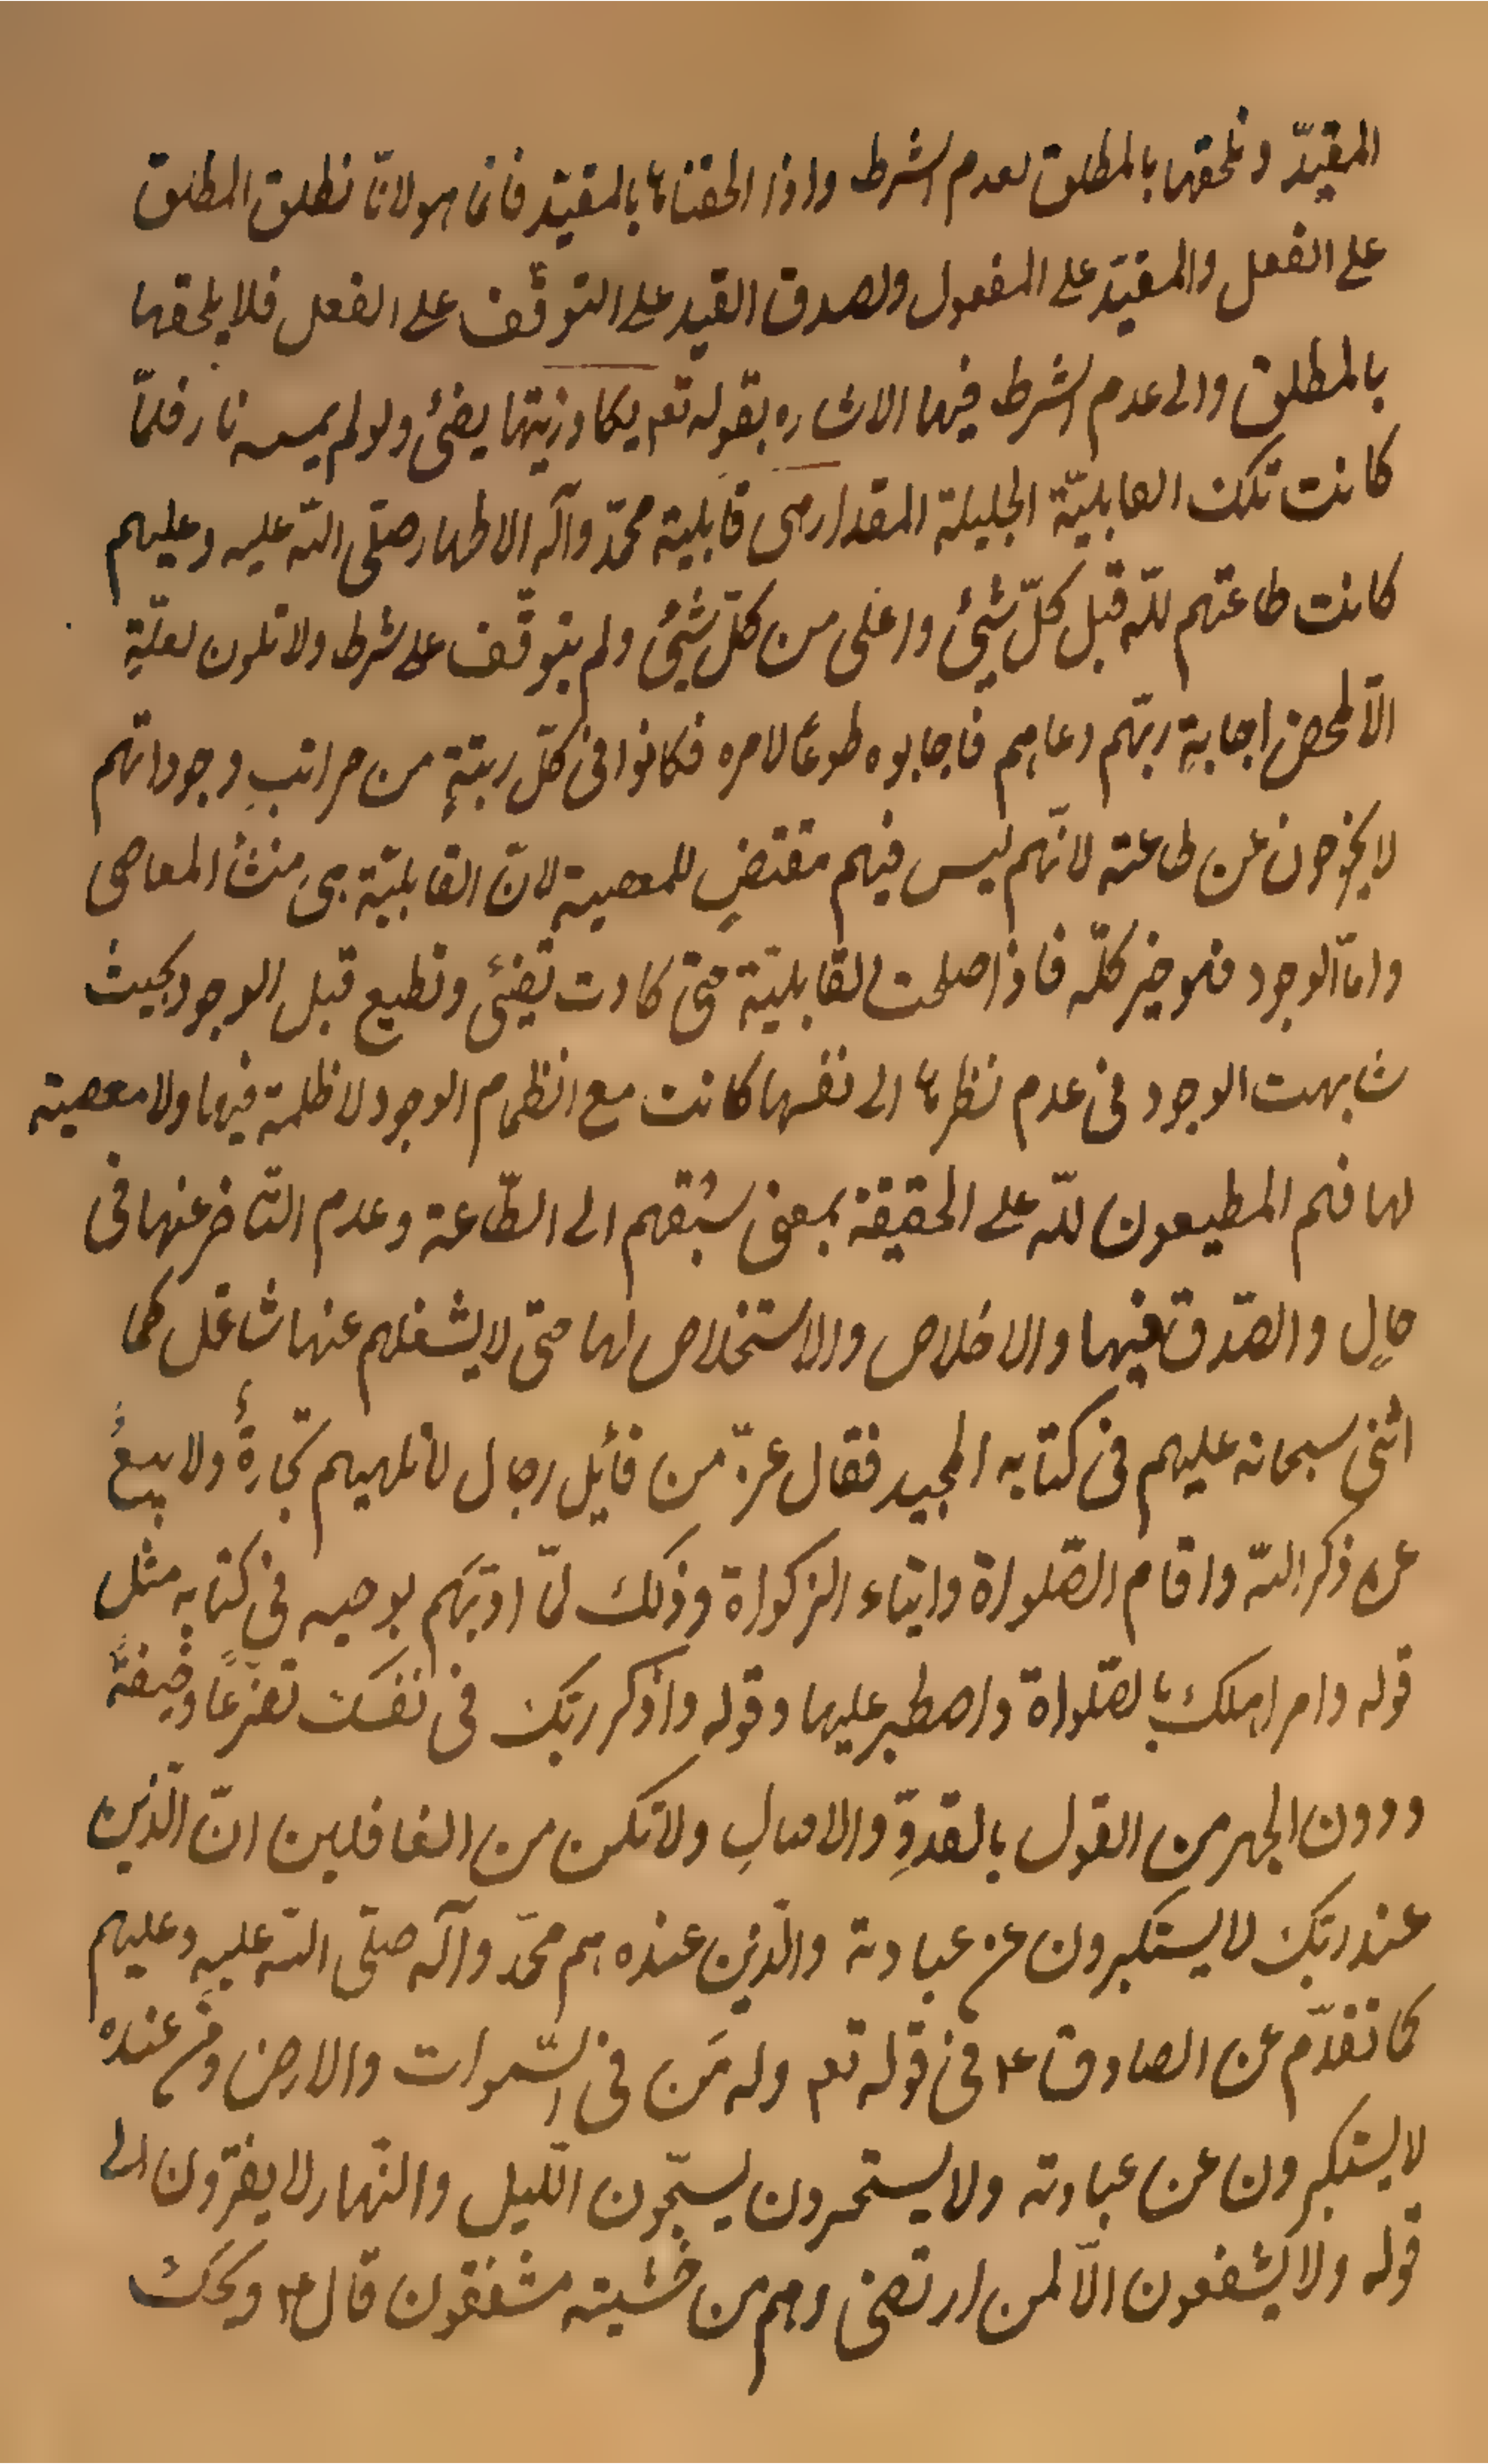 المقيّد ونلحقها بالمطلق لعدم الشرط واذا الحقناها بالمقيّد فانما هو لانّا نطلق المطلق
على الفعل والمقيّد على المفعول ولصدق القيد على التوقّف على الفعل فلا يلحقها
بالمطلق والى عدم الشرط فيها الاشاره بقوله تعم يكاد زيتها يضئ ولو لم يمسسه نار فلمّا
كانت تلك القابليّة الجليلة المقدار هى قابلية محمّد وآله الاطهار صلّى اللّه عليه وعليهم
كانت طاعتهم للّه قبل كلّ شئ واعلى من كلّ شئ ولم يتوقّف على شرط ولا تكون لعلّةٍ
الّا لمحض اجابةِ ربّهم دعاهم فاجابوه طوعًا لامره فكانوا فى كلّ رتبةٍ من مراتبِ وجوداتهم
لا يخرجون عن طاعته لانّهم ليس فيهم مقتضٍ للمعصية لانّ القابليّة هى منشأ المعاصى
وامّا الوجود فهو خير كلّه فاذا صلحت القابليّة حتّى كادت تضئ وتطيع قبل الوجود بحيث
شابهت الوجود فى عدم نظرها الى نفسها كانت مع انظمام الوجود لا ظلمة فيها ولا معصية
لها فهم المطيعون للّه على الحقيقة بمعنى سبقهم الى الطّاعة وعدم التّاخر عنها فى
حالٍ والصّدق فيها والاخلاص والاستخلاص لها حتّى لا يشغلهم عنها شاغل كما
اثنى سبحانه عليهم فى كتابه المجيد فقال عزّ من قائل رجال لا تلهيهم تجارةٌ ولا بيعٌ
عن ذكر اللّه واقام الصّلواة وايتاء الزكواة وذلك لمّا ادّبَهم بوحيه فى كتابه مثل
قوله وامر اهلك بالصّلواة واصطبر عليها وقوله واذكر ربّك فى نفسك تضرّعًا وخيفةً
ودون الجهر من القول بالغدوِّ والاصالِ ولا تكن من الغافلين انّ الّذين
عند ربّك لا يستكبرون عن عبادته والّذين عنده هم محمّد وآله صلّى اللّه عليه وعليهم
كما تقدّم عن الصادق ع فى قوله تعم وله مَن فى السّموات والارض ومَن عنده
لا يستكبرون عن عبادته ولا يستحسرون يسبّحون اللّيل والنّهار لا يفترون الى
قوله ولا يشفعون الّا لمن ارتضى وهم من خشيته مشفقون قال ع ويحك